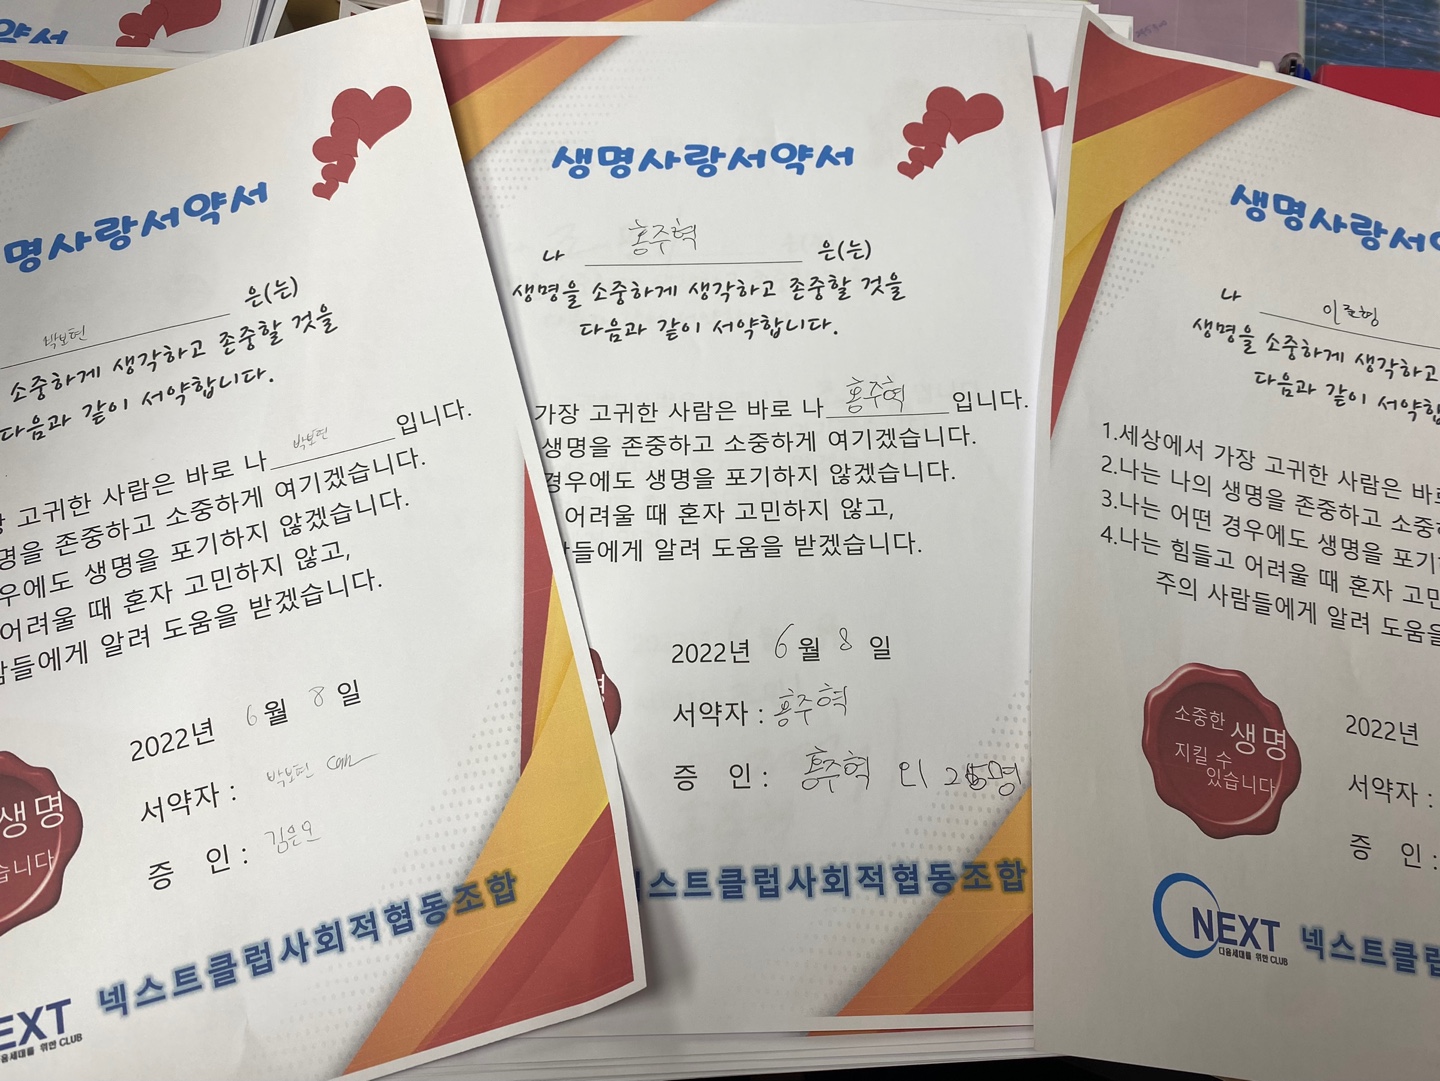 약서
명사랑서약서
박보현 은(는)
소중하게 생각하고 존중할 것을
다음과 같이 서약합니다.
고귀한 사람은 바로 나 박보현 입니다.
명을 존중하고 소중하게 여기겠습니다.
우에도 생명을 포기하지 않겠습니다.
어려울 때 혼자 고민하지 않고,
람들에게 알려 도움을 받겠습니다.
2022년 6월 8일
서약자 : 박보현
증 인 : 김은오
생명
습니다
EXT
음세대를 위한 CLUB
넥스트클럽사회적협동조합
생명사랑서약서
나 홍주혁 은(는)
생명을 소중하게 생각하고 존중할 것을
다음과 같이 서약합니다.
가장 고귀한 사람은 바로 나 홍주혁 입니다.
생명을 존중하고 소중하게 여기겠습니다.
경우에도 생명을 포기하지 않겠습니다.
어려울 때 혼자 고민하지 않고,
람들에게 알려 도움을 받겠습니다.
2022년 6월 8일
서약자 : 홍주혁
증 인 : 홍주혁 외 25명
스트클럽사회적협동조합
생명사랑서
나 이준형
생명을 소중하게 생각하고
다음과 같이 서약합
1.세상에서 가장 고귀한 사람은 바로
2.나는 나의 생명을 존중하고 소중하
3.나는 어떤 경우에도 생명을 포기
4.나는 힘들고 어려울 때 혼자 고민
주의 사람들에게 알려 도움을
소중한 생명
지킬 수
있습니다
2022년
서약자 :
증 인 :
NEXT
다음세대를 위한 CLUB
넥스트클럽